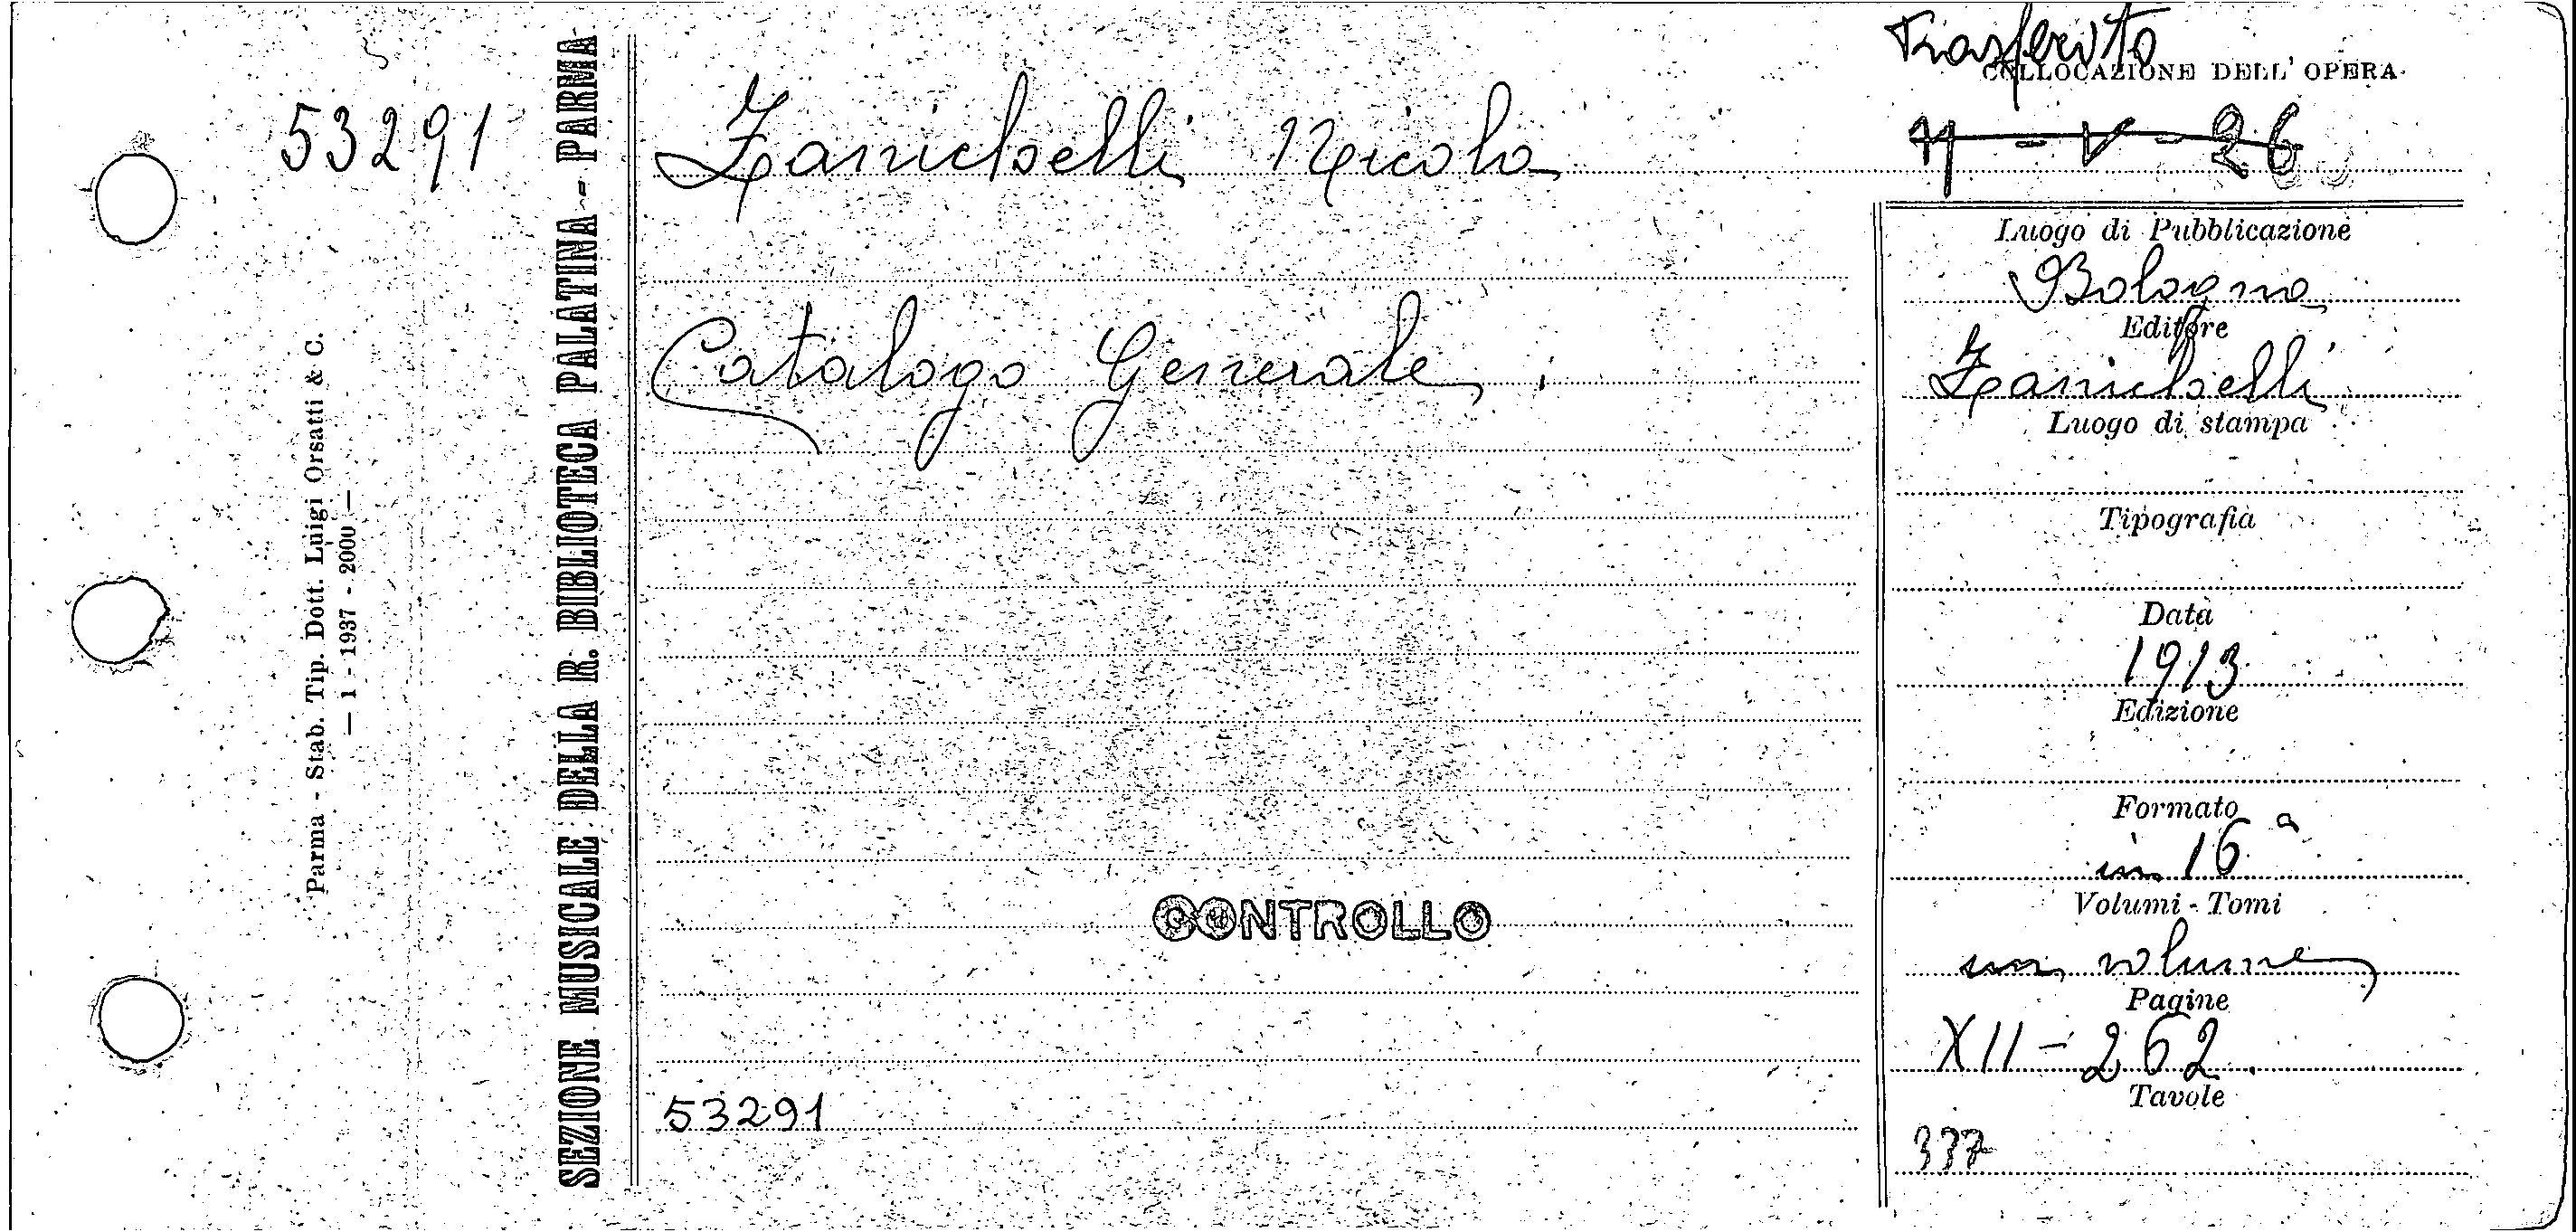 53291
Parma - Stab. Tip. Dott. Luigi Orsatti & C.
— 1 - 1937 - 2000 —
SEZIONE MUSICALE DELLA R. BIBLIOTECA PALATINA - PARMA
Zanichelli Nicola
Catalogo Generale.
CONTROLLO
53291
Trasferito
COLLOCAZIONE DELL' OPERA
- V - 26
Luogo di Pubblicazione
Bologna
Editore
Zanichelli
Luogo di stampa
Tipografia
Data
1913
Edizione
Formato
in 16º
Volumi - Tomi
un volume
Pagine
XII - 262.
Tavole
337